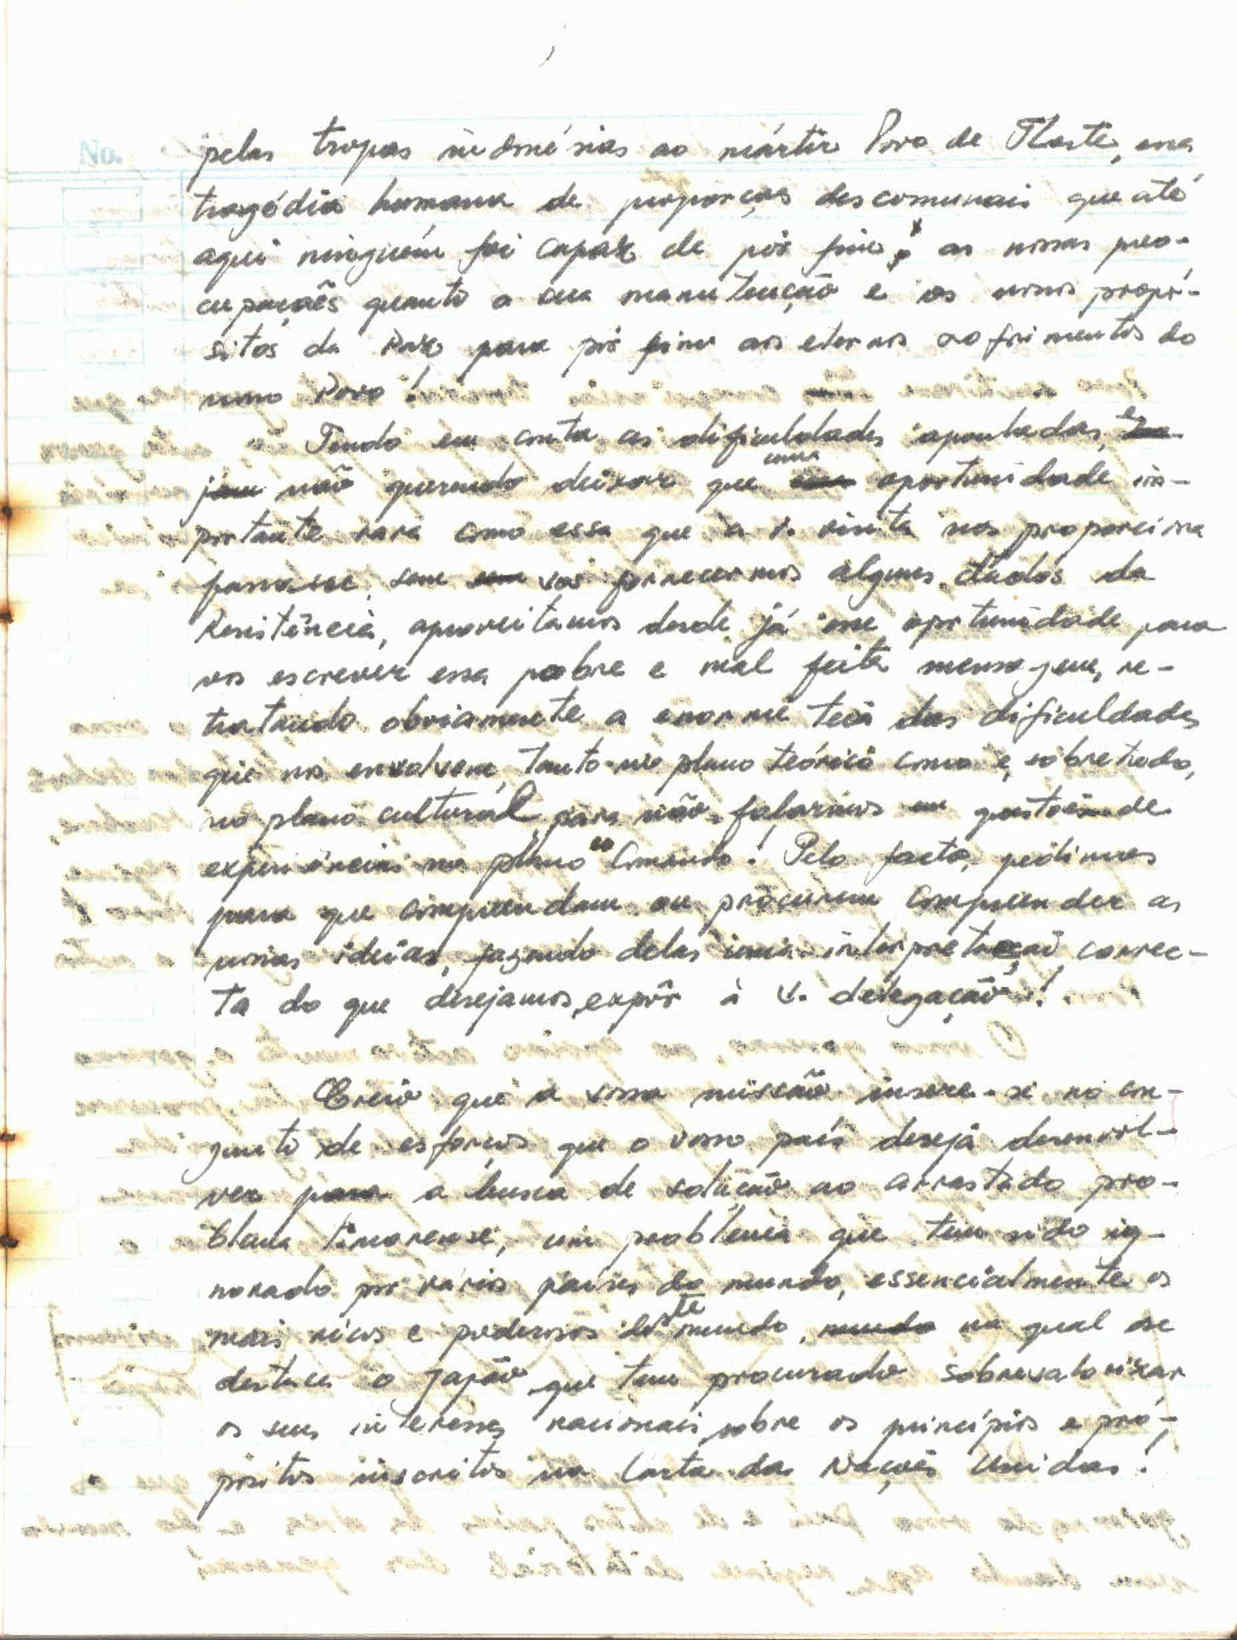 No.
pelas tropas indonésias ao mártir Povo de T.Leste, essa
tragédia humana de proporções descomunais que até
aqui ninguém foi capaz de pôr fim; as nossas preo-
cupações quanto a sua manutenção e os nossos propó-
sitos da Paz, para pôr fim aos eternos sofrimentos do
nosso Povo!
Tendo em conta as dificuldades apontadas, e
não querendo deixar que uma oportunidade im-
portante rara como essa que a v. visita nos proporciona
passasse sem vos fornecermos alguns dados da
Resistência, aproveitamos desde já esse oportunidade para
vos escrever essa pobre e mal feita mensagem, re-
tratando obviamente a enorme teia das dificuldades
que nos envolvem, tanto no plano teórico como e, sobretudo,
no plano cultural, para não falarmos em questões de
experiências no plano do Comando! Pelo facto, pedimos
para que compreendam ou procurem compreender as
nossas ideias, fazendo delas uma interpretação correc-
ta do que desejamos expôr à V. delegação!
Creio que a vossa missão insere-se no con-
junto de esforços que o vosso país deseja desenvol-
ver para a busca de solução ao arrastado pro-
blema timorense, um problema que tem sido ig-
norado por vários países do mundo, essencialmente os
mais ricos e poderosos deste mundo, mundo na qual se
destaca o Japão que tem procurado sobrevalorizar
os seus interesses nacionais sobre os princípios e pro-
pósitos inscritos na Carta das Nações Unidas!